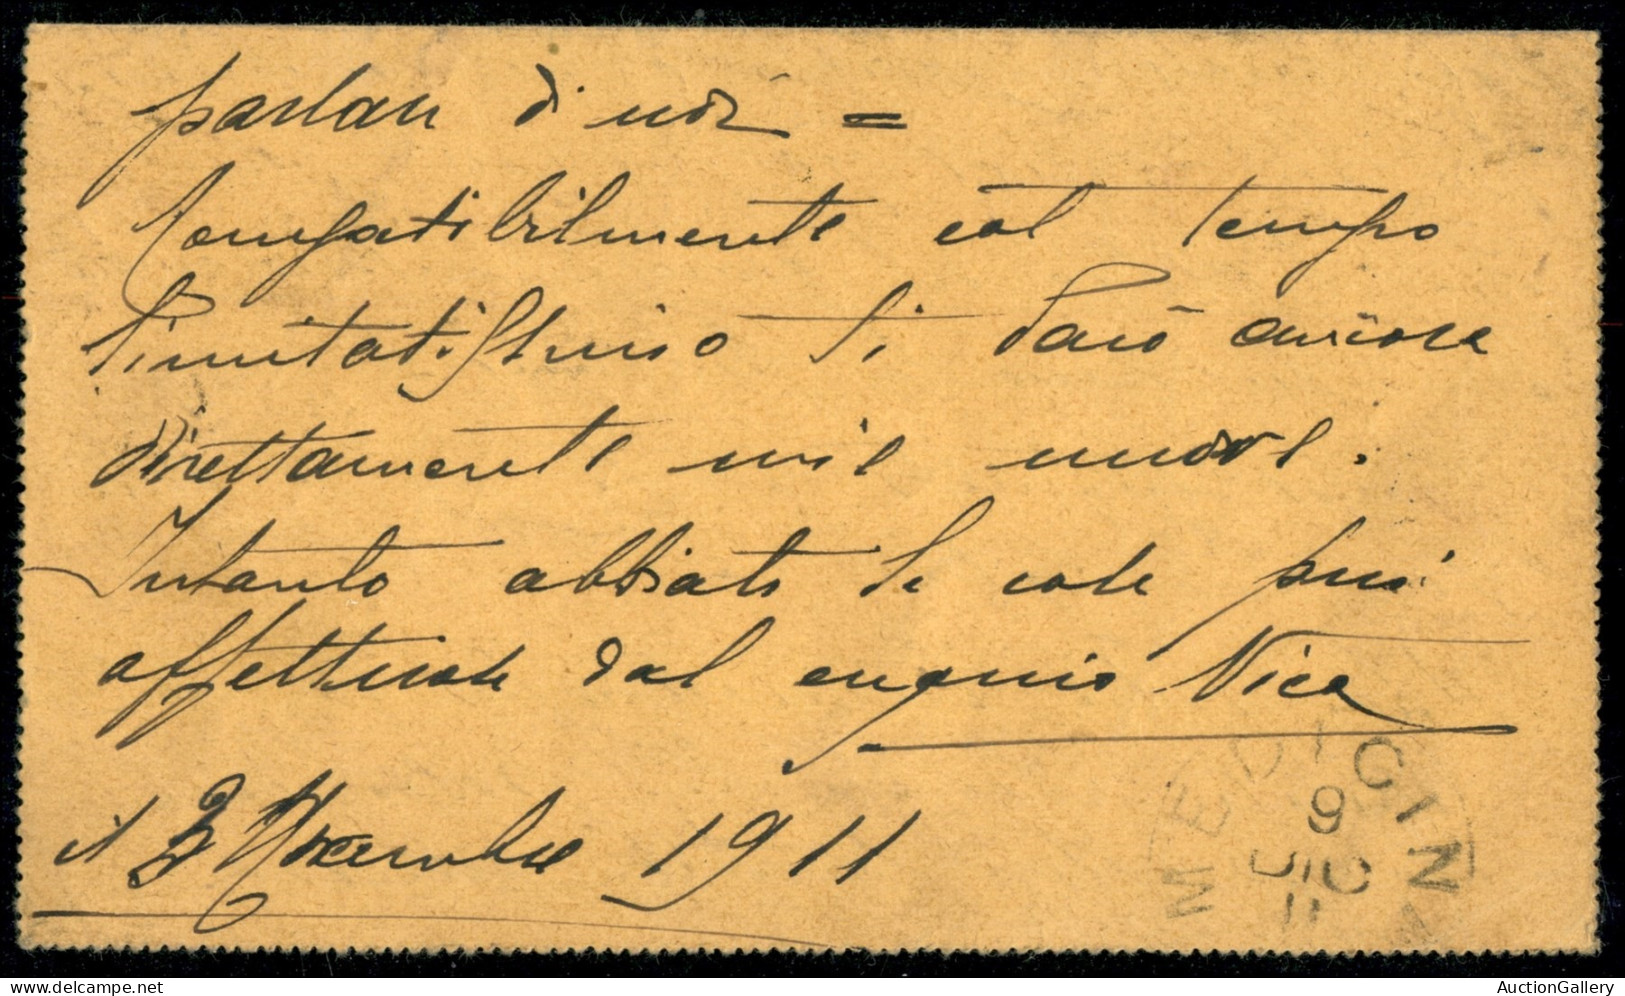 parlare di noi =
Compatibilmente col tempo
limitatissimo ti darò ancora
direttamente mie nuove.
Intanto abbiate le cose più
affettuose dal
il 3 1911
MEDICINA
9
DIC
11
AuctionGallery